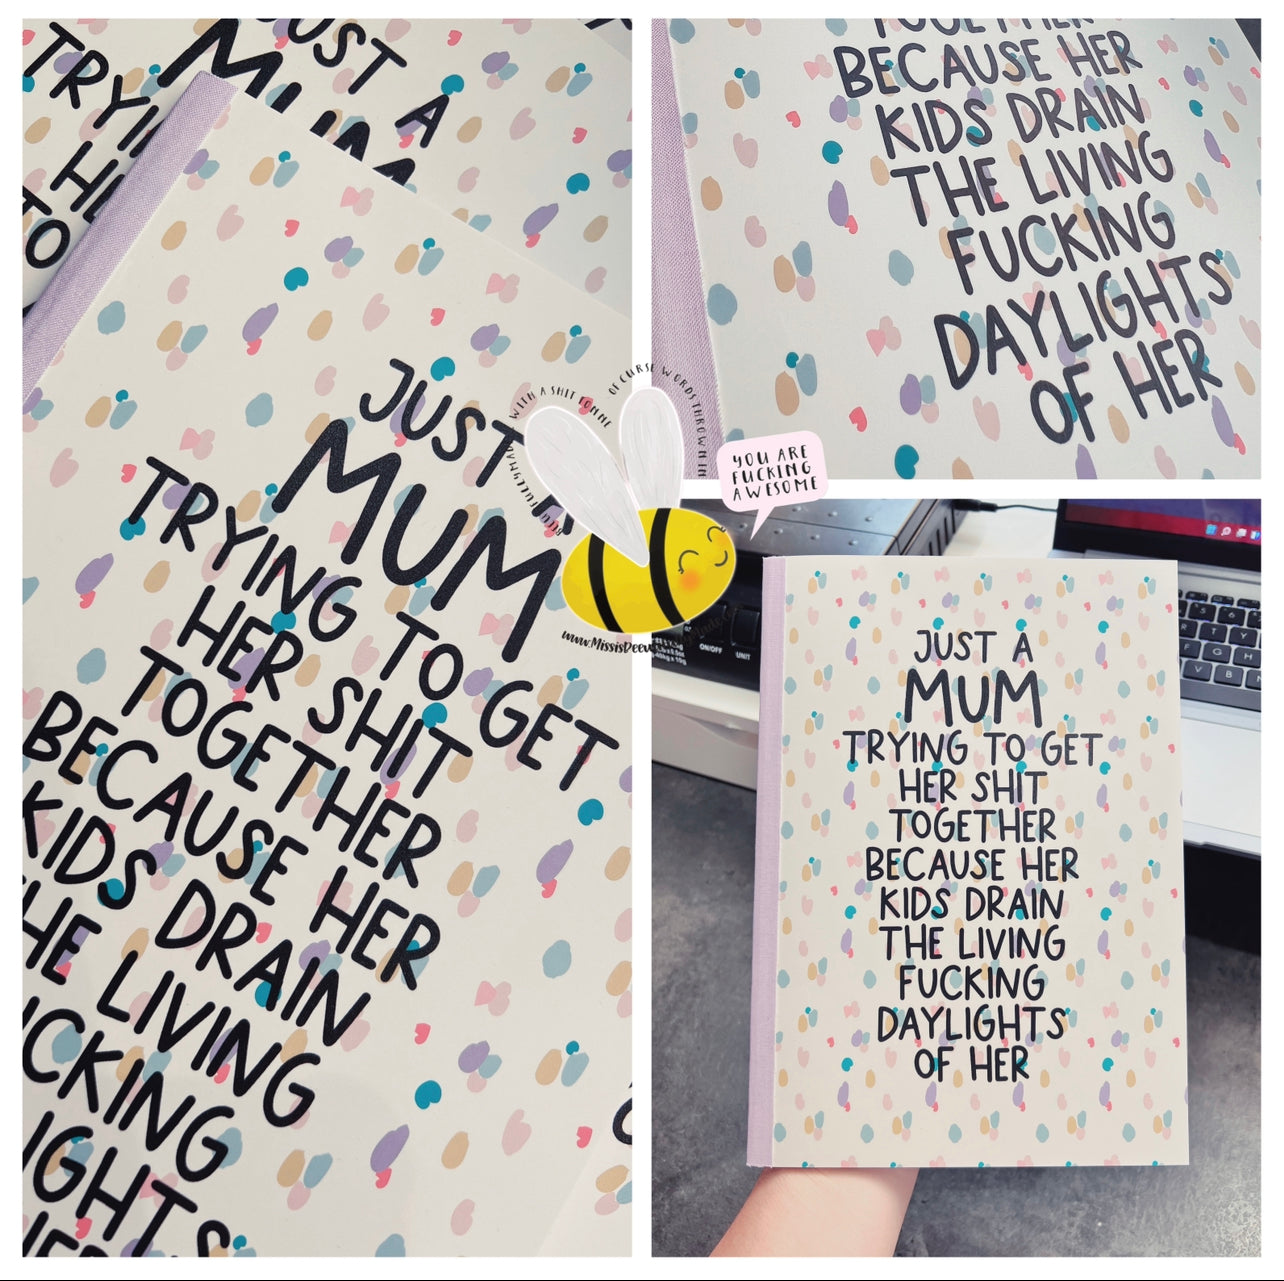 JUST A
MUM
TRYING
HE
TO
JUST
MUM
TRYING TO GET
HER SHIT
TOGETHER
BECAUSE HER
KIDS DRAIN
THE LIVING
FUCKING
DAYLIGHTS
TOGETHER
BECAUSE HER
KIDS DRAIN
THE LIVING
FUCKING
DAYLIGHTS
OF HER
WITH A SHIT TONNE
OF CURSE WORDS THROWN IN
YOU ARE
FUCKING
AWESOME
ON/OFF
UNIT
JUST A
MUM
TRYING TO GET
HER SHIT
TOGETHER
BECAUSE HER
KIDS DRAIN
THE LIVING
FUCKING
DAYLIGHTS
OF HER